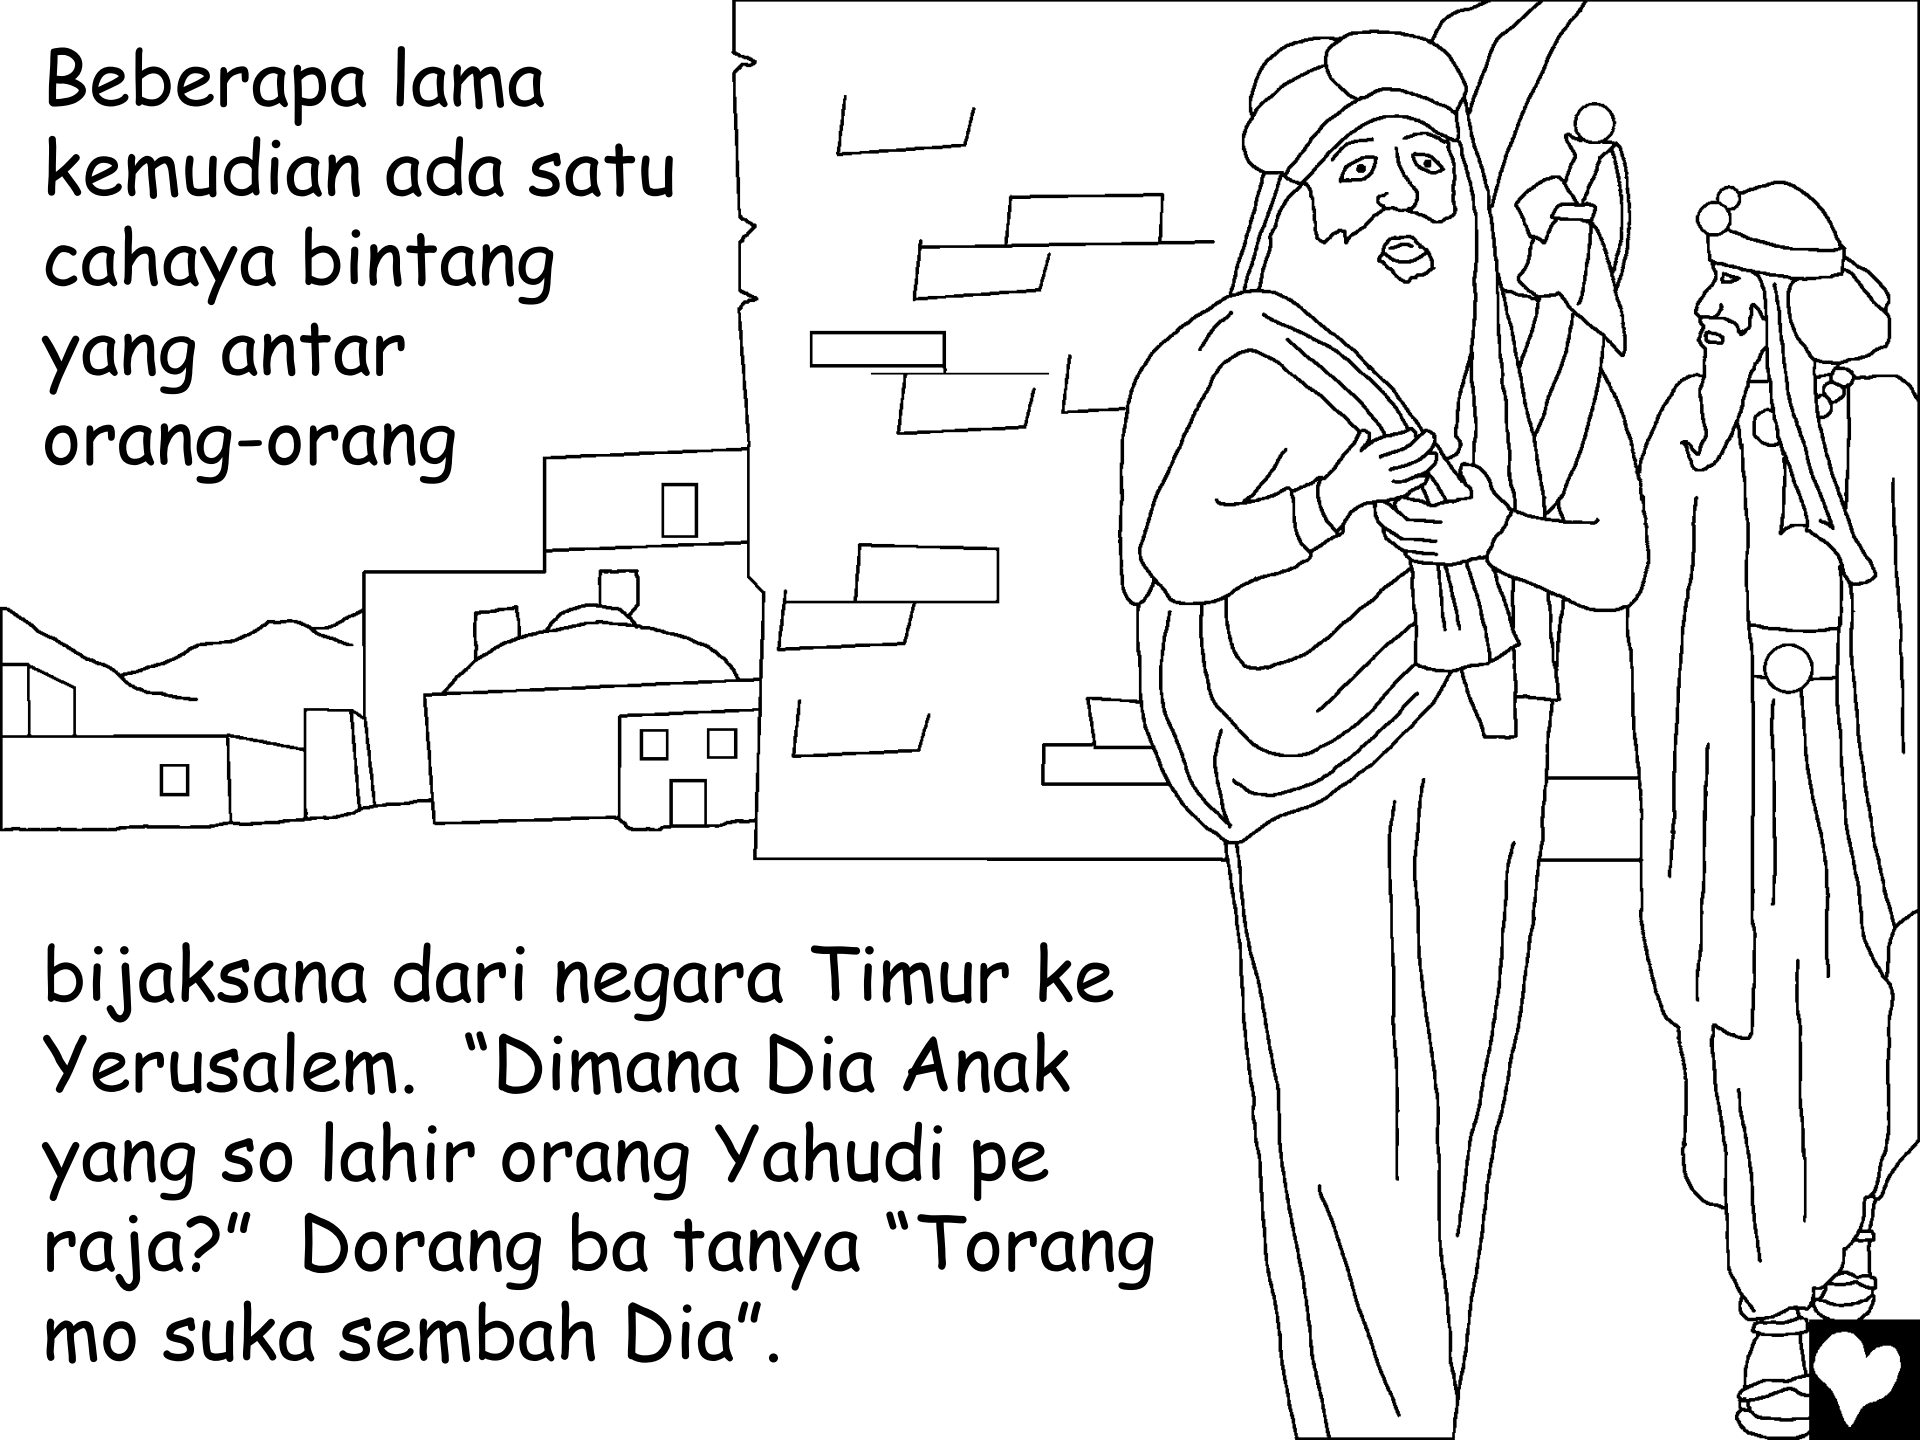 Beberapa lama
kemudian ada satu
cahaya bintang
yang antar
orang-orang
bijaksana dari negara Timur ke
Yerusalem.  “Dimana Dia Anak
yang so lahir orang Yahudi pe
raja?”  Dorang ba tanya “Torang
mo suka sembah Dia”.